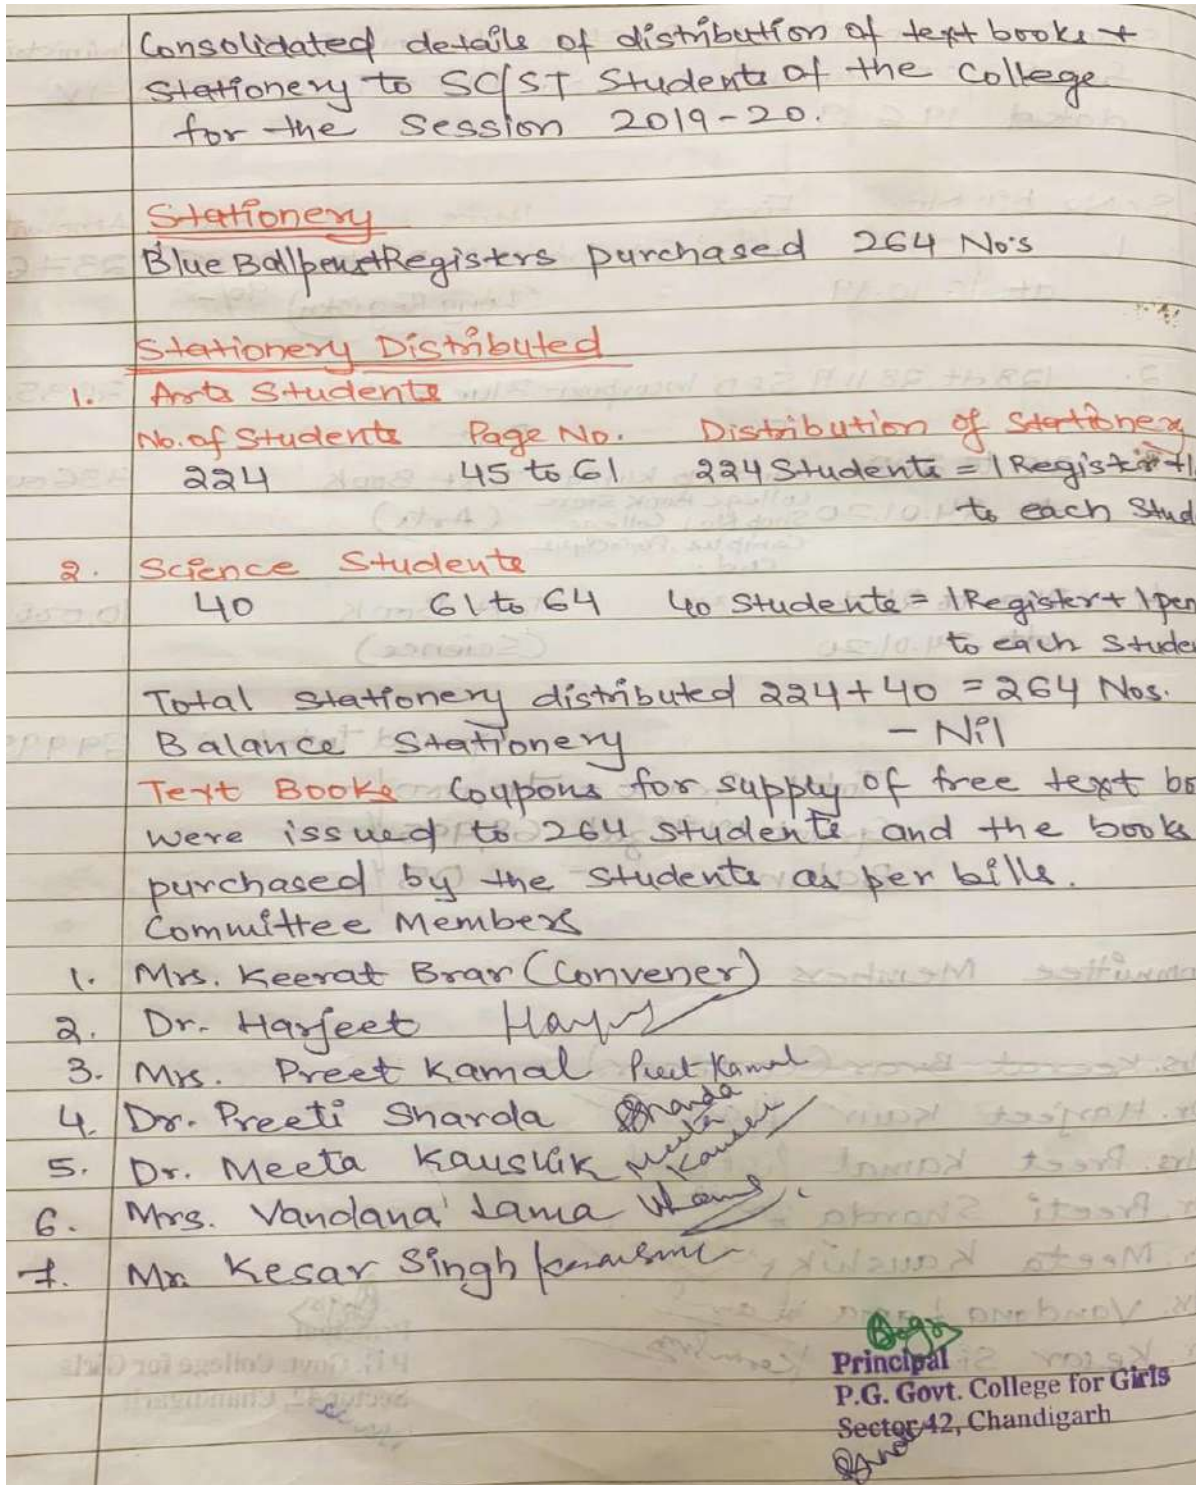 Consolidated details of distribution of text books +
Stationery to SC/ST Students of the College
for the Session 2019-20.
Stationery
Blue Ballpens+Registers purchased 264 No's
Stationery Distributed
1. Arts Students
No. of Students Page No. Distribution of Stationery
224 45 to 61 224 Students = 1 Register+1
to each Stud
2. Science Students
40 61 to 64 40 Students = 1 Register + 1 pen
to each Stude
Total Stationery distributed 224+40 = 264 Nos.
Balance Stationery - Nil
Text Books Coupons for supply of free text bo
were issued to 264 students and the books
purchased by the Students as per bills.
Committee Members
1. Mrs. Keerat Brar (Convener)
2. Dr. Harjeet
3. Mrs. Preet Kamal Preet Kamal
4. Dr. Preeti Sharda Sharda
5. Dr. Meeta Kaushik Meeta Kaushik
6. Mrs. Vandana Lama
7. Mr. Kesar Singh
Principal
P.G. Govt. College for Girls
Sector 42, Chandigarh